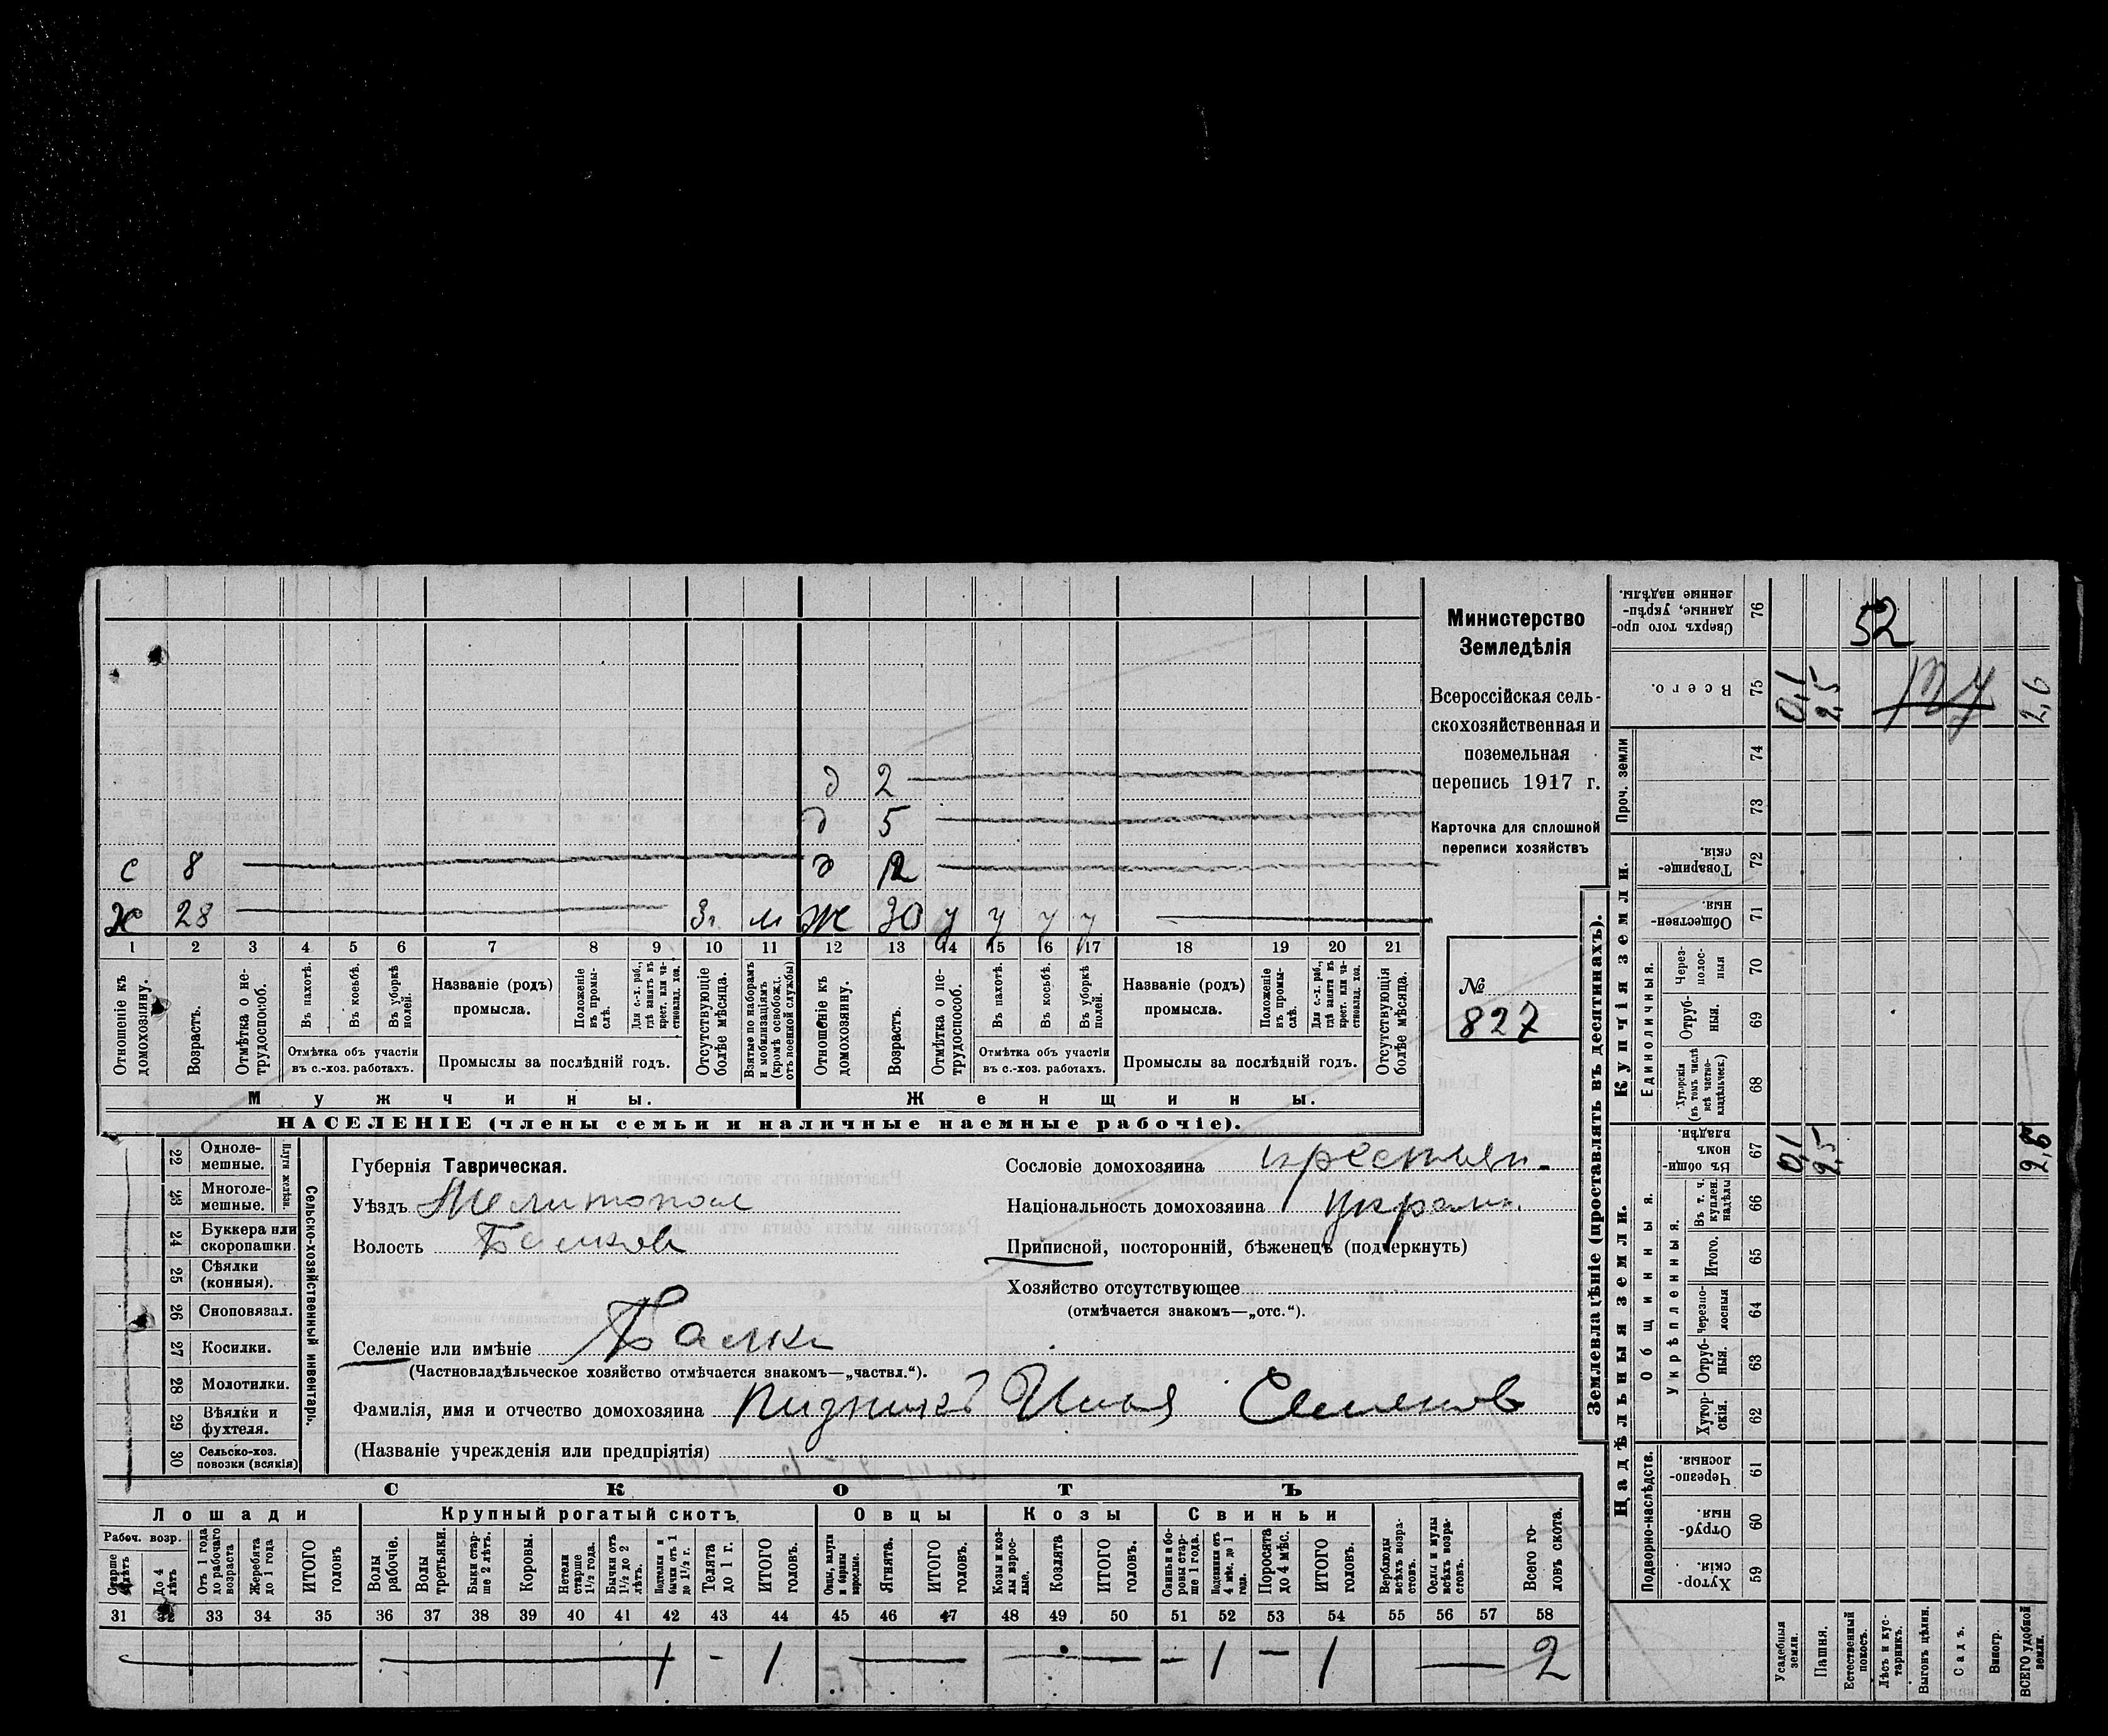 Министерство
Земледѣлія
Всероссійская сель-
скохозяйственная и
поземельная
перепись 1917 г.
Карточка для сплошной
переписи хозяйствъ
№
827
д 2
д 5
с 8 д 12
28 3 г. м ж 30 у у у у
1 2 3 4 5 6 7 8 9 10 11 12 13 14 15 16 17 18 19 20 21
Отношеніе къ домохозяину.
Возрастъ.
Отмѣтка о не-трудоспособ.
Въ пахотѣ.
Въ косьбѣ.
Въ уборкѣ полей.
Отмѣтка объ участіи въ с.-хоз. работахъ.
Названіе (родъ) промысла.
Положеніе въ промы-слѣ.
Для с.-х. раб., гдѣ занятъ въ крест. или ча-стновлад. хоз.
Промыслы за послѣдній годъ.
Отсутствующіе болѣе мѣсяца.
Взятые по наборамъ и мобилизаціямъ (кромѣ освобожд. отъ военной службы)
Отношеніе къ домохозяину.
Возрастъ.
Отмѣтка о не-трудоспособ.
Въ пахотѣ.
Въ косьбѣ.
Въ уборкѣ полей.
Отмѣтка объ участіи въ с.-хоз. работахъ.
Названіе (родъ) промысла.
Положеніе въ промы-слѣ.
Для с.-х. раб., гдѣ занята въ крест. или ча-стновлад. хоз.
Промыслы за послѣдній годъ.
Отсутствующія болѣе мѣсяца.
Мужчины. Женщины.
НАСЕЛЕНІЕ (члены семьи и наличные наемные рабочіе).
Сельско-хозяйственный инвентарь.
Плуги желѣзн.
22 Одноле-мешные.
23 Многоле-мешные.
24 Буккера или скоропашки.
25 Сѣялки (конныя).
26 Сноповязал.
27 Косилки.
28 Молотилки.
29 Вѣялки и фухтеля.
30 Сельско-хоз. повозки (всякія)
Губернія Таврическая.
Уѣздъ Мелитопол
Волость Балков
Селеніе или имѣніе Балки
(Частновладѣльческое хозяйство отмѣчается знакомъ—„частвл.“).
Фамилія, имя и отчество домохозяина Илья Семенов
(Названіе учрежденія или предпріятія)
Сословіе домохозяина крестьян.
Національность домохозяина украин.
Приписной, посторонній, бѣженецъ (подчеркнуть)
Хозяйство отсутствующее
(отмѣчается знакомъ—„отс.“).
СКОТЪ
Лошади Крупный рогатый скотъ Овцы Козы Свиньи
Рабоч. возр.
Старше 4 лѣтъ
До 4 лѣтъ
Отъ 1 года до рабочаго возраста
Жеребята до 1 года
ИТОГО головъ
Волы рабочіе.
Волы третьяки.
Быки стар-ше 2 лѣтъ.
Коровы.
Нетели старше 1½ года.
Бычки отъ 1½ до 2 лѣтъ.
Подтелки и бычки отъ 1 до 1½ г.
Телята до 1 г.
ИТОГО головъ.
Овцы, валухи и бараны взрослые.
Ягнята.
ИТОГО головъ.
Козы и коз-лы взрос-лые.
Козлята
ИТОГО головъ.
Свиньи и бо-ровы стар-ше 1 года.
Подсвинки отъ 4 мѣс. до 1 года.
Поросята до 4 мѣс.
ИТОГО головъ.
Верблюды всѣхъ возра-стовъ.
Ослы и мулы всѣхъ возра-стовъ.
Всего го-ловъ скота.
31 32 33 34 35 36 37 38 39 40 41 42 43 44 45 46 47 48 49 50 51 52 53 54 55 56 57 58
1 - 1 - 1 - 1 2
Землевладѣніе (проставлять въ десятинахъ).
Надѣльныя земли. Купчія земли. Проч. земли
Подворно-наслѣдств. Общинныя. Укрѣпленныя. Единоличныя.
Сверхъ того про-данные, укрѣп-ленные надѣлы. 76 52
Всего. 75 0,1 2,5 127 2,6
74
73
Товарище-скія. 72
Обществен-ныя. 71
Через-полос-ныя 70
Отруб-ныя. 69
Хуторскія (въ томъ числѣ всѣ частно-владѣльческ.) 68
Въ общин-номъ владѣн. 67 0,1 2,5 2,6
Въ т. ч. куплен. надѣлы 66
Итого. 65
Черезпо-лосныя 64
Отруб-ныя. 63
Хутор-скія. 62
Черезпо-лосныя. 61
Отруб-ныя. 60
Хутор-скія. 59
Усадебныя земли.
Пашня.
Естественный покосъ.
Лѣсъ и кус-тарникъ.
Выгонъ цѣлин.
Садъ.
Виногр.
ВСЕГО удобной земли.